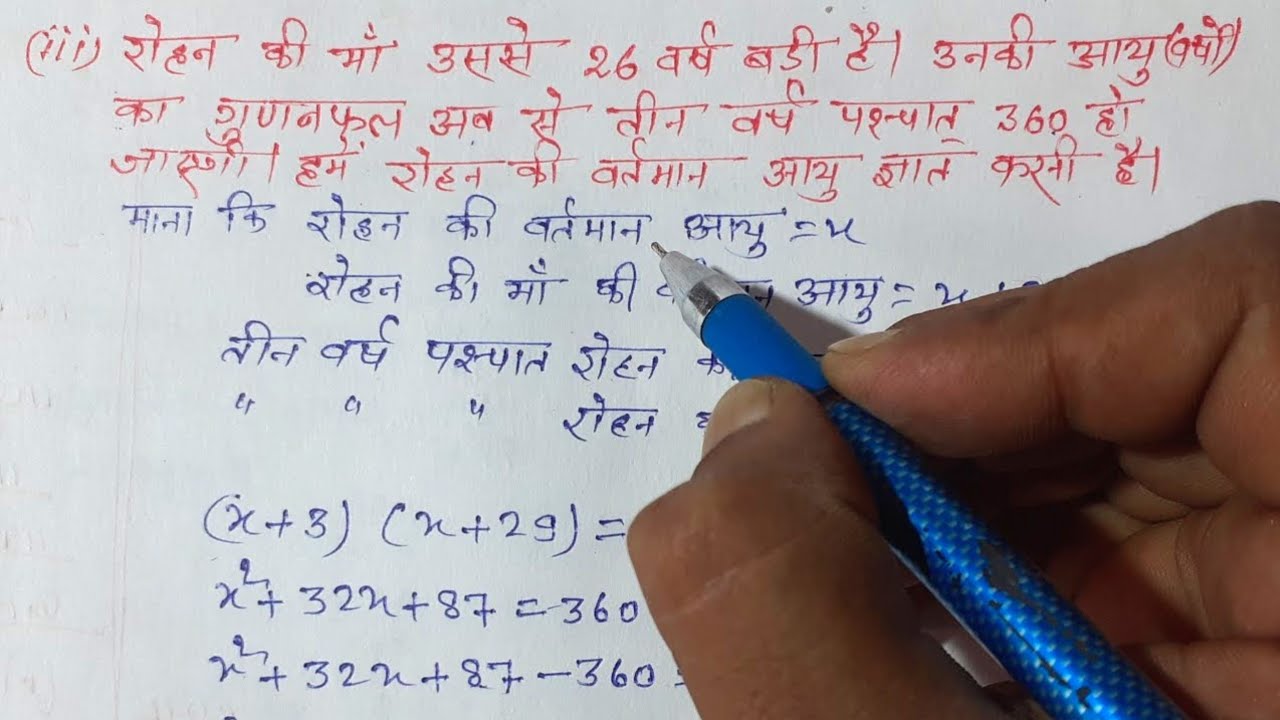 (iii) रोहन की माँ उससे 26 वर्ष बड़ी है। उनकी आयु (वर्षों)
का गुणनफल अब से तीन वर्ष पश्चात् 360 हो
जाएगी। हमें रोहन की वर्तमान आयु ज्ञात करनी है।
माना कि रोहन की वर्तमान आयु = x
रोहन की माँ की आयु = x +
तीन वर्ष पश्चात रोहन
" " " रोहन
(x+3) (x+29) =
x²+ 32x+87 = 360
x²+ 32x+87 - 360 =